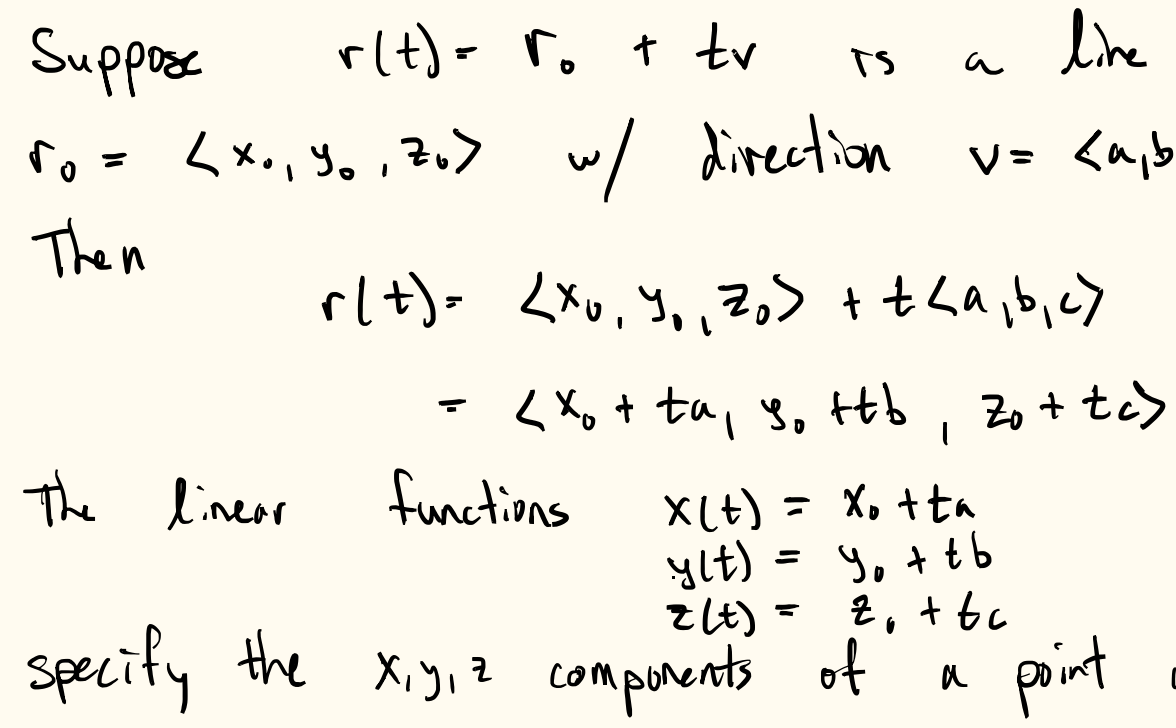 Suppose r(t) = r₀ + tv is a line
r₀ = <x₀, y₀, z₀> w/ direction v = <a,b
Then
r(t) = <x₀, y₀, z₀> + t<a,b,c>
= <x₀ + ta, y₀ + tb, z₀ + tc>
The linear functions x(t) = x₀ + ta
y(t) = y₀ + tb
z(t) = z₀ + tc
specify the x,y,z components of a point